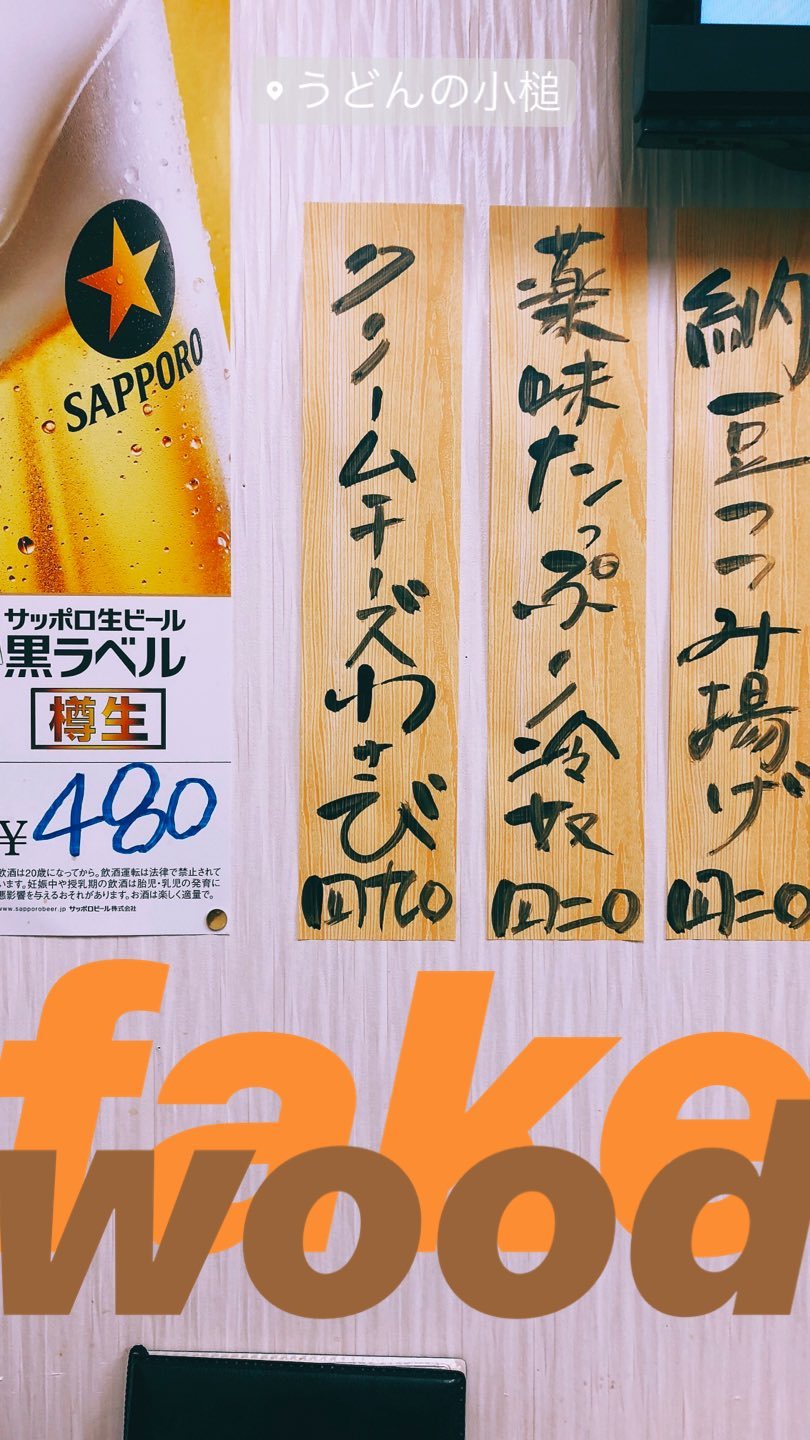 うどんの小槌
SAPPORO
サッポロ生ビール
黒ラベル
樽生
¥480
飲酒は20歳になってから。飲酒運転は法律で禁止されて
います。妊娠中や授乳期の飲酒は胎児・乳児の発育に
悪影響を与えるおそれがあります。お酒は楽しく適量で。
www.sapporobeer.jp サッポロビール株式会社
納豆つつみ揚げ
四二〇
薬味たっぷり冷奴
四二〇
クリームチーズわさび
四九〇
fake
wood